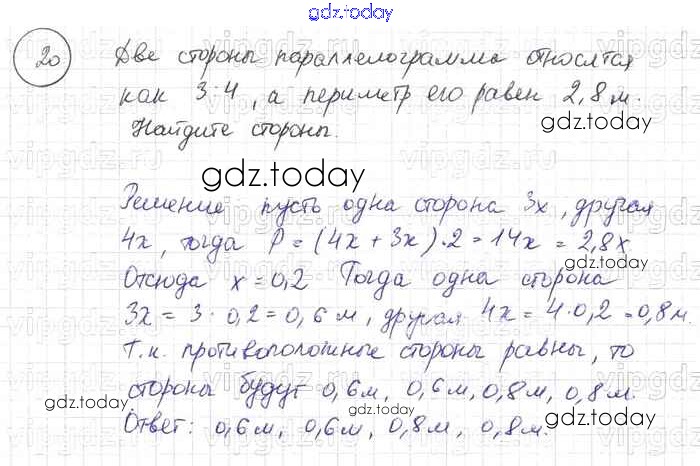 gdz.today
20 Две стороны параллелограмма относятся
как 3:4, а периметр его равен 2,8 м.
Найдите стороны.
gdz.today
gdz.today
Решение пусть одна сторона 3x, другая
4x, тогда P = (4x + 3x)·2 = 14x = 2,8x
gdz.today
Отсюда x = 0,2 Тогда одна сторона
3x = 3·0,2 = 0,6 м, другая 4x = 4·0,2 = 0,8 м.
Т.к. противоположные стороны равны, то
стороны будут 0,6 м, 0,6 м, 0,8 м, 0,8 м.
gdz.today
gdz.today
Ответ: 0,6 м, 0,6 м, 0,8 м, 0,8 м.